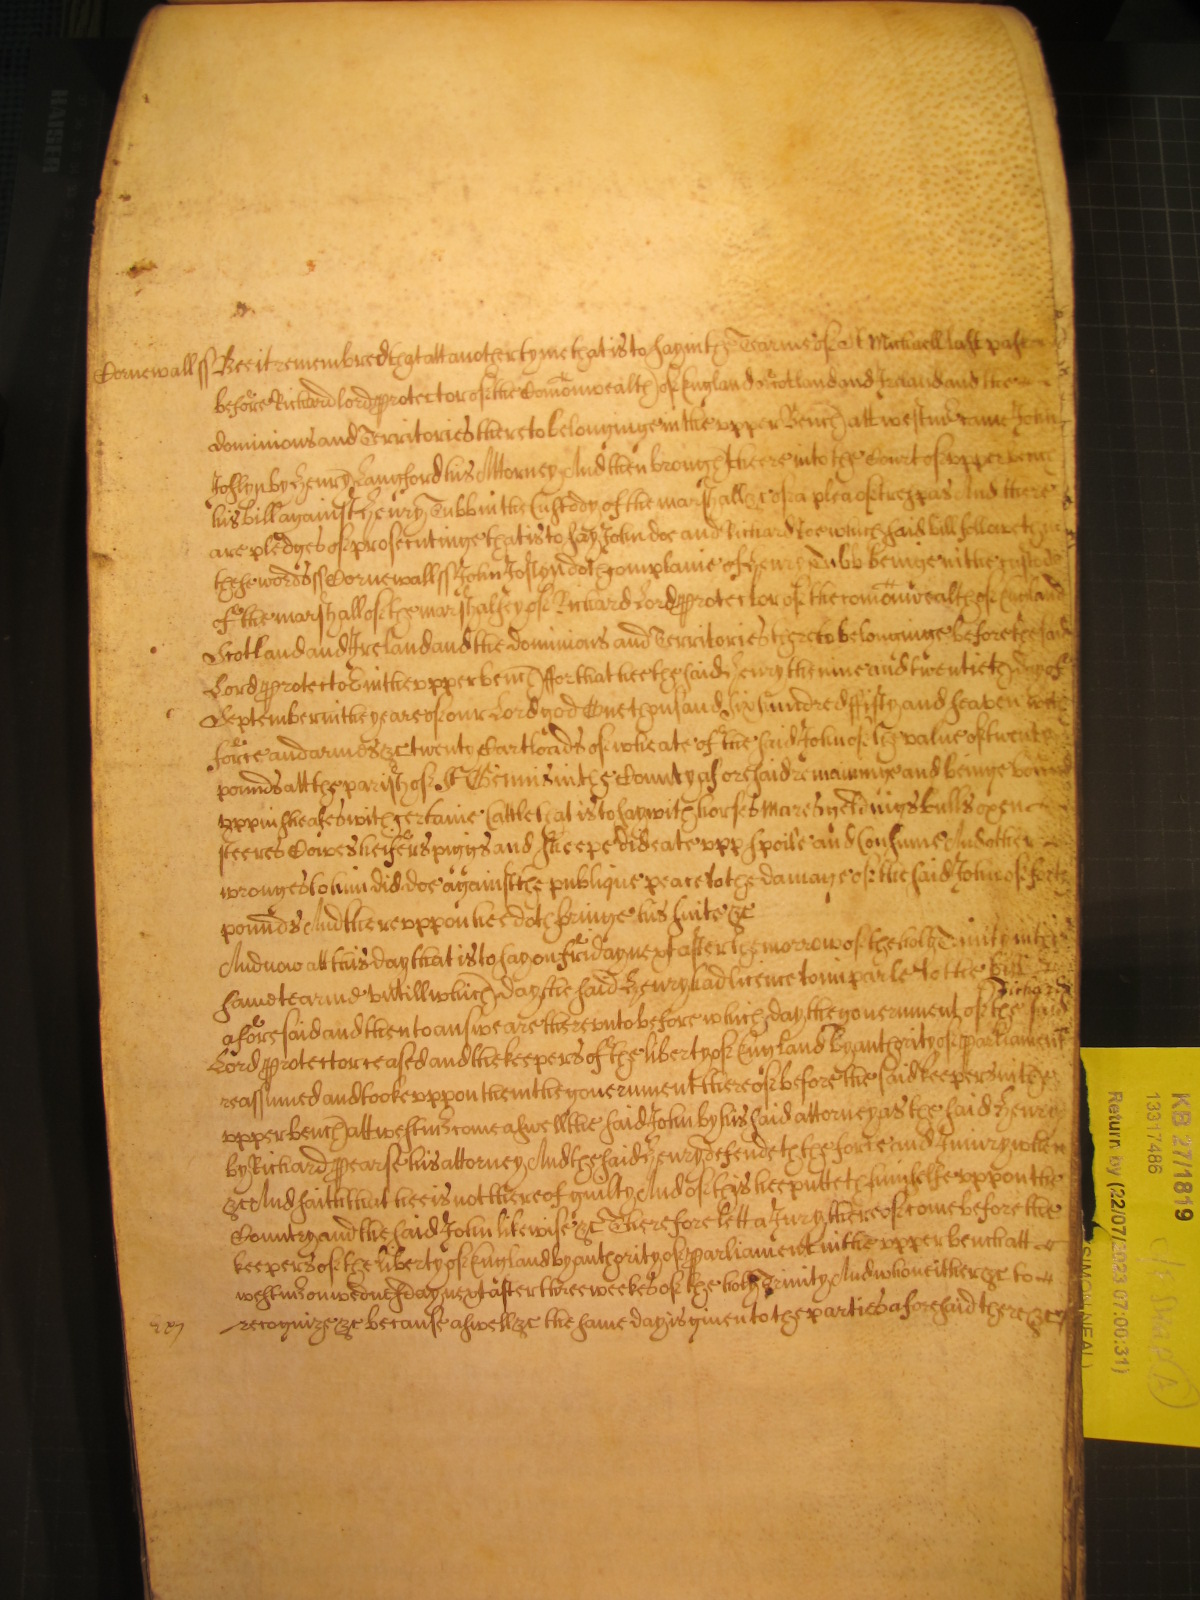 Cornewall ss Bee it remembred that att another tyme that is to say in the Tearme of St Michaell last past
before Richard Lord Protector of the Comonwealth of England Scotland and Ireland and the
dominions and Territories thereto belonginge in the upper Bench att westmr came John
Joslyn by Henry Langford his Attorney And then brought here into the Court of upper bench
his bill against Henry Tubb in the Custody of the marshall &c of a plea of trespas And there
are pledges of prosecutinge that is to say John doe and Richard Roe which said bill followeth in
these words ss Cornewall ss John Joslyn doth complaine of Henry Tubb beinge in the custodie
of the marshall of the marshalsey of Richard Lord Protector of the comonwealth of England
Scotland and Ireland and the dominions and Territories thereto belonginge before the said
Lord Protector in the upper bench ffor that hee the said Henry the nine and twentieth day of
September in the yeare of our Lord god One thousand six hundred ffifty and seaven with
force and armes &c twenty Cartloads of wheate of the said John of the value of twenty
pounds att the parish of St Gennis in the County aforesaid remaininge and beinge bound
upp in sheafes with certaine Cattle that is to say with horses mares geldings bulls oxen
steeres Cowes heifers piggs and sheepe did eate upp spoile and Consume And other
wronges to him did doe against the publique peace to the damage of the said John of forty
pounds And thereuppon hee doth bringe his suite &c
And now att this day that is to say on Friday next after the morrow of the holy Trinity in this
same tearme untill which day the said Henry had licence to imparle to the bill
aforesaid and then to answeare thereunto before which day the government of the said Richard
Lord Protector ceased and the keepers of the liberty of England by authority of Parliament
reassumed and tooke uppon them the government thereof before the said keepers in the
upper bench att westmr come aswell the said John by his said attorney as the said Henry
by Richard Pearse his attorney And the said Henry defendeth the force and Iniury when
&c And saith that hee is not thereof guilty And of this hee putteth himselfe uppon the
Country and the said John likewise &c Therefore lett a Jury thereof come before the
keepers of the liberty of England by authority of Parliament in the upper bench att
westmr on wednesday next after three weekes of the holy Trinity And who neither &c to
recognize &c because aswell &c the same day is given to the parties aforesaid there &c
HAISER
KB 27/1819
13317486
Return by (22/07/2023 07:00:31)
SIMON NEAL)